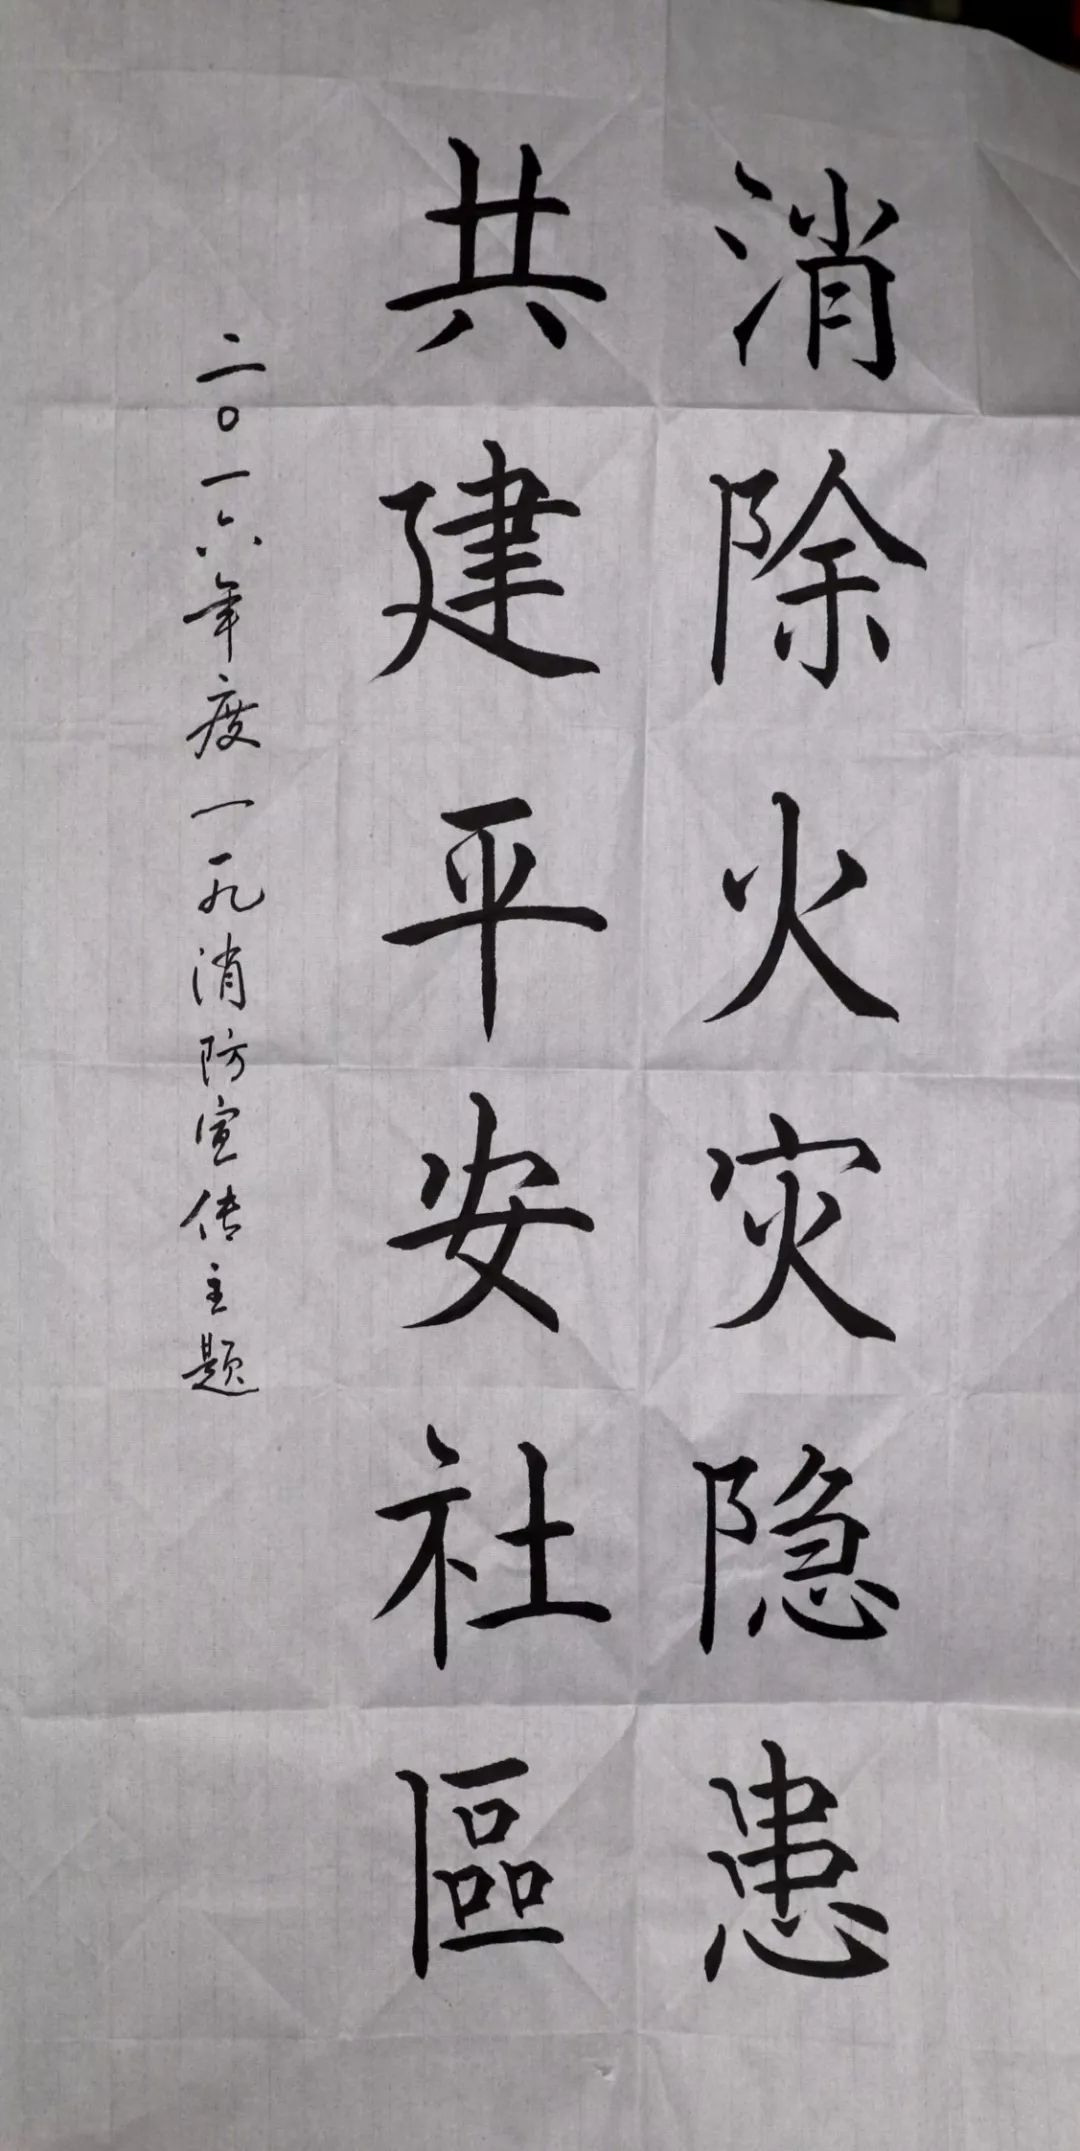 消除火灾隐患
共建平安社區
二〇一六年度一一九消防宣传主题